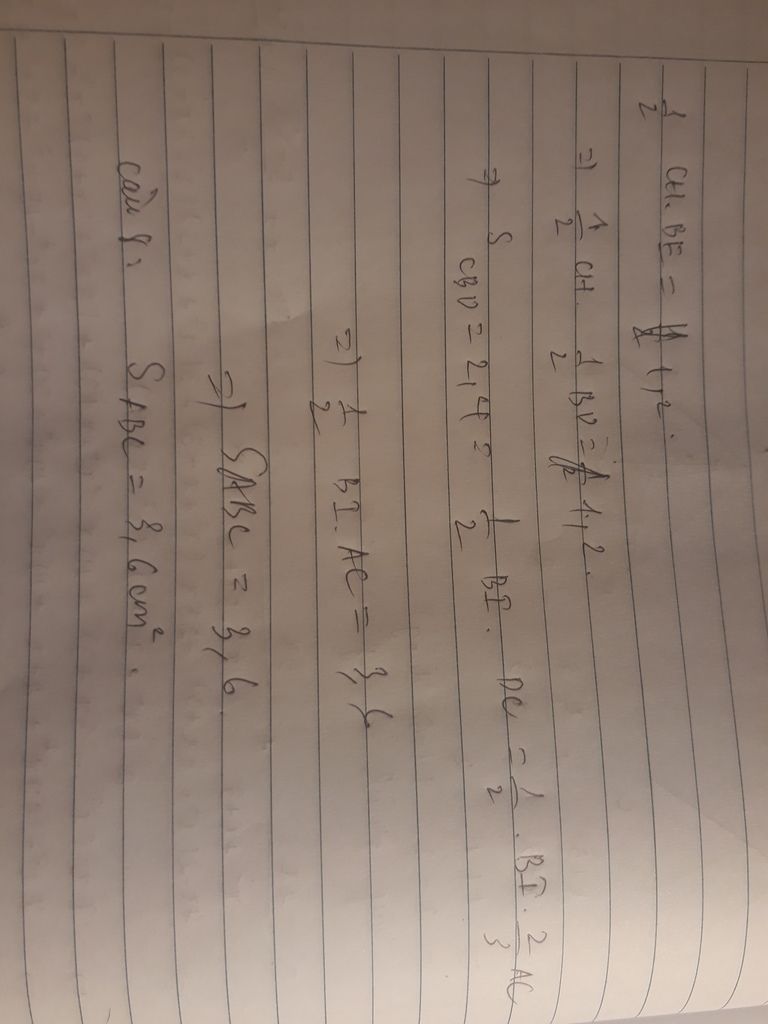 1/2 CH. BE = 1,2.
=) 1/2 CH. 1/2 BD = 1,2.
=) S CBD = 2,4 = 1/2 BI. DC = 1/2 . BI. 2/3 AC
=) 1/2 BI. AC = 3,6
=) SABC = 3,6
Câu 8: SABC = 3,6 cm².